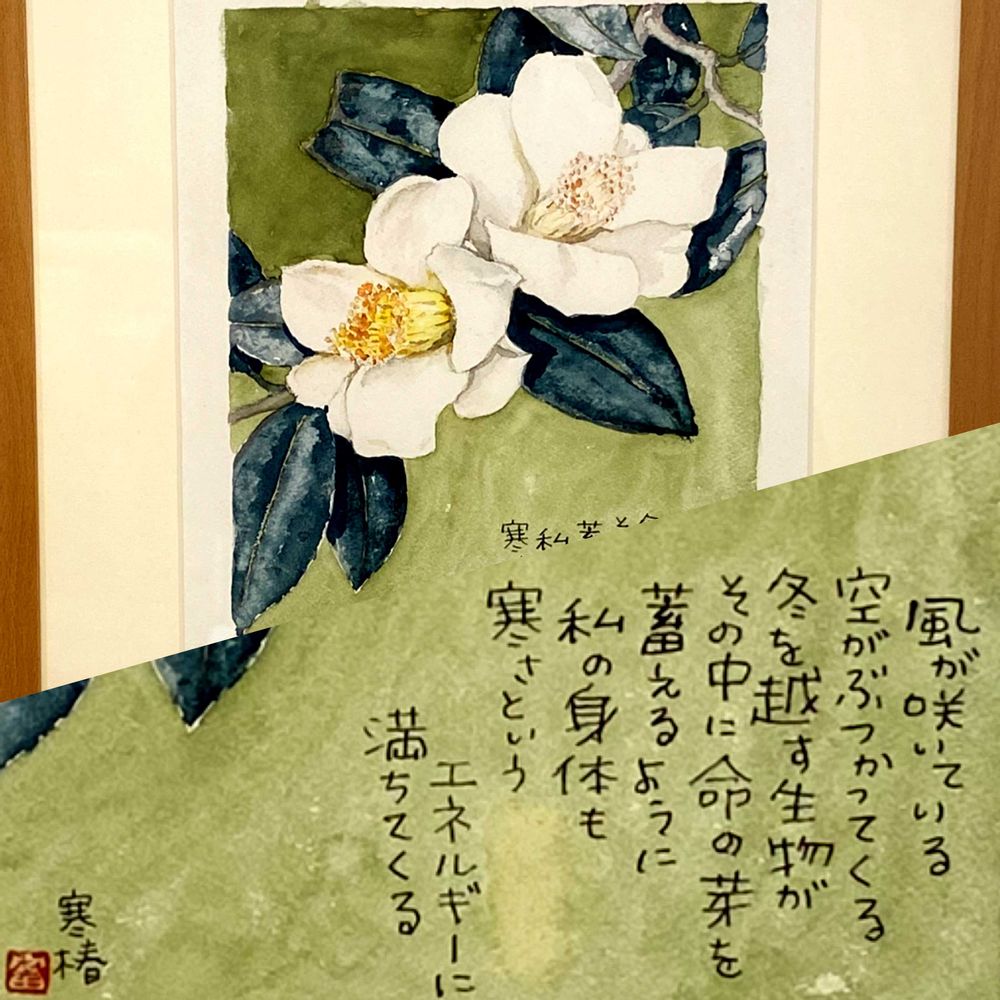 寒私芸と人
風が咲いている
空がぶつかってくる
冬を越す生物が
その中に命の芽を
蓄えるように
私の身体も
寒さという
エネルギーに
満ちてくる
寒椿